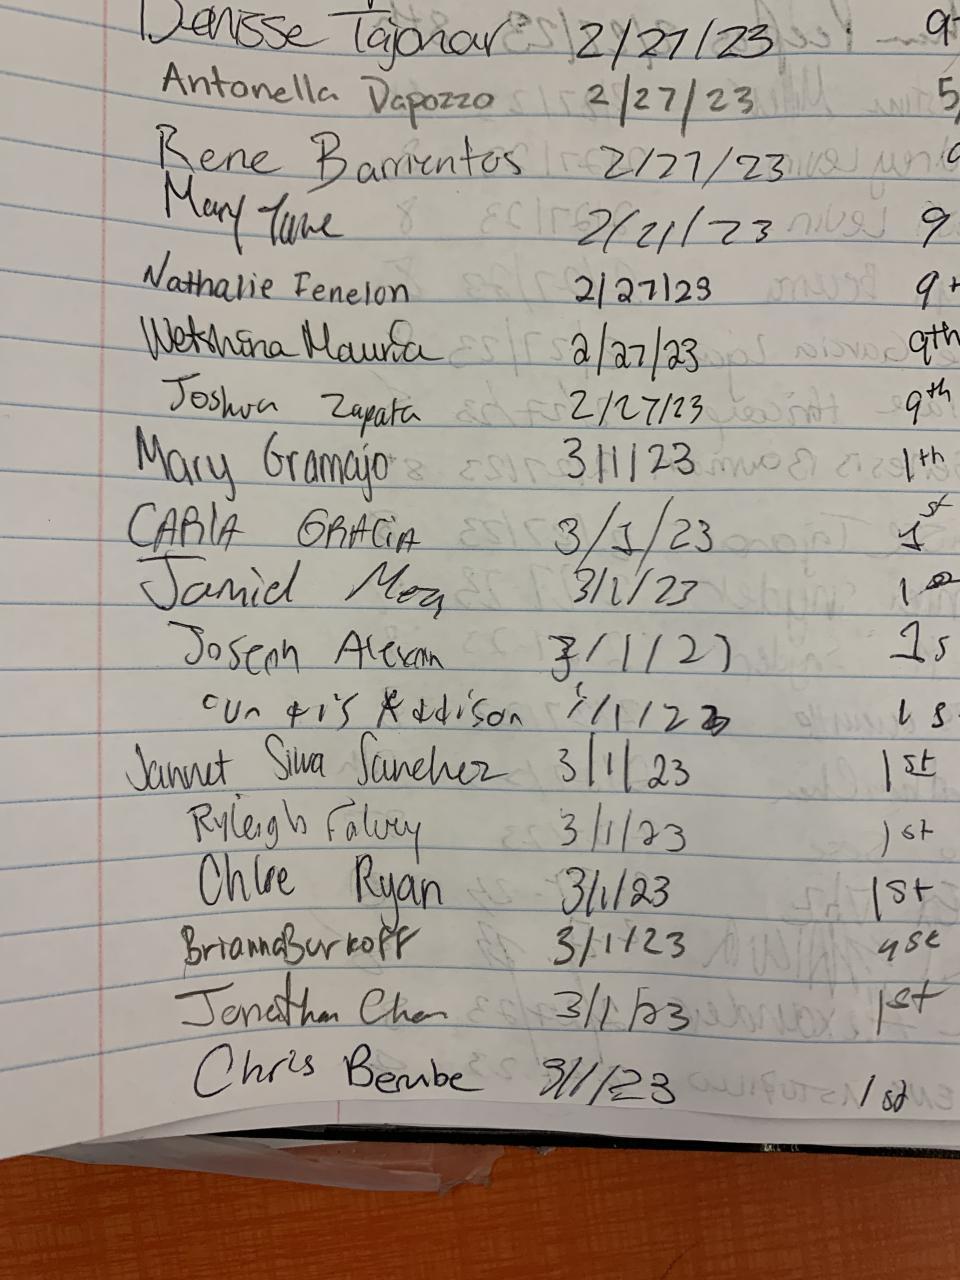 Denisse Tajonar 2/27/23 9
Antonella Dapozzo 2/27/23 5
Rene Barrientos 2/27/23
Mary Jane 2/21/23 9
Nathalie Fenelon 2/27/23 9t
Wetshina Mauria 2/27/23 9th
Joshua Zapata 2/27/23 9th
Mary Gramajo 3/1/23 1th
CARlA GRACiA 3/1/23 1st
Jamiel 3/1/23 1
Joseph 3/1/23 1s
Addison /1/23 1s
Jannet Silva Sanchez 3/1/23 1st
Ryleigh Falvey 3/1/23 1st
Chloe Ryan 3/1/23 1st
Brianna Burkoff 3/1/23 1st
Jonathan Chen 3/1/23 1st
Chris Berube 3/1/23 1st